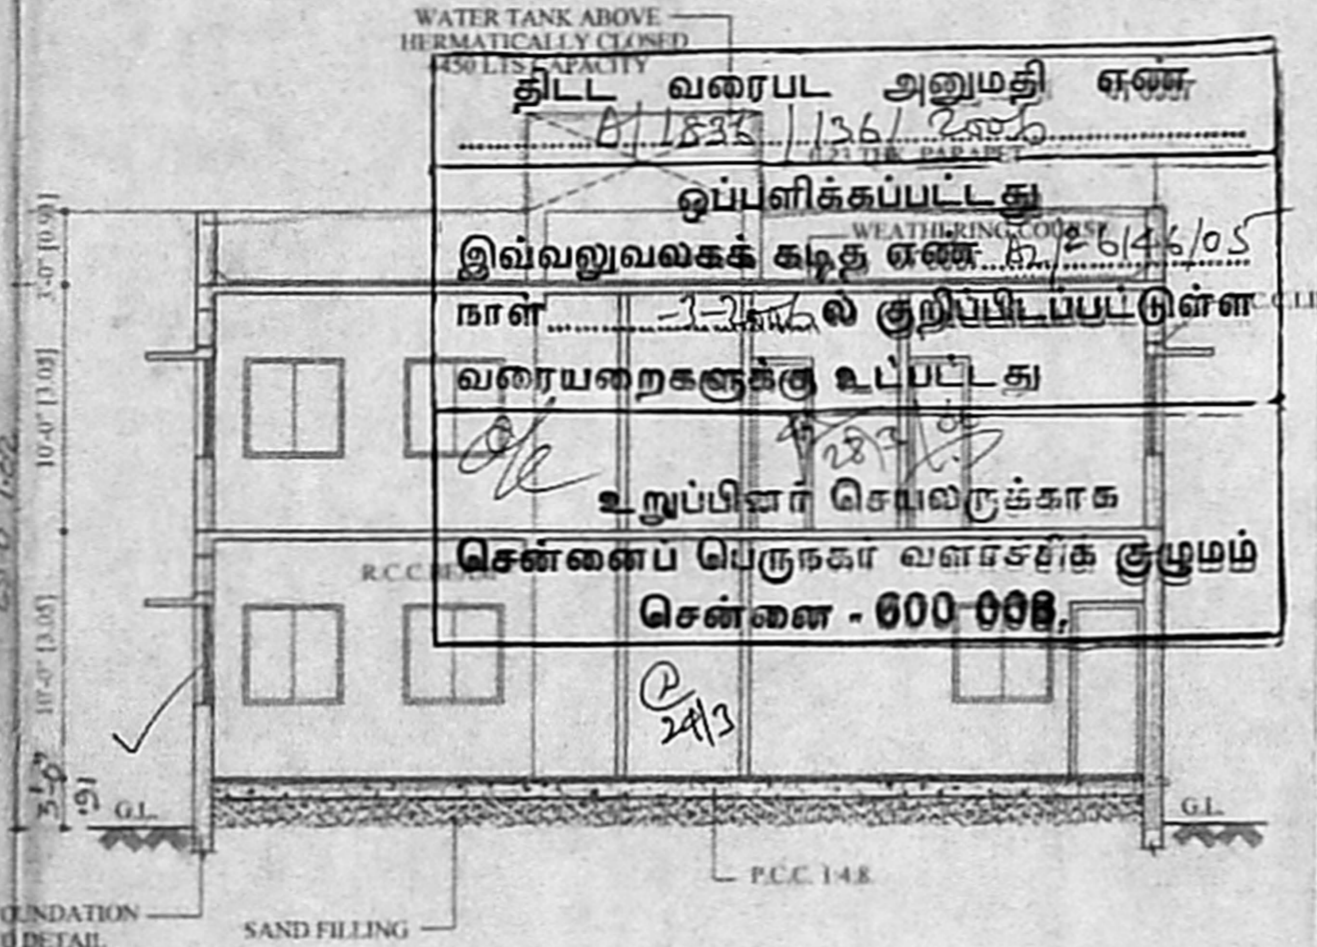 WATER TANK ABOVE
HERMATICALLY CLOSED
450 LTS CAPACITY
திட்ட வரைபட அனுமதி எண்
/ 136 / 2006
0.23 THK. PARAPET
ஒப்பளிக்கப்பட்டது
WEATHERING COURSE
இவ்வலுவலகக் கடித எண் /26146/05
நாள் -3-2006 ல் குறிப்பிடப்பட்டுள்ள
வரையறைகளுக்கு உட்பட்டது
28/3/06
உறுப்பினர் செயலருக்காக
சென்னைப் பெருநகர் வளர்ச்சிக் குழுமம்
சென்னை - 600 008.
R.C.C.
24/3
3'-0" [0.91]
10'-0" [3.05]
10'-0" [3.05]
3'-0"
.91
G.L.
G.L.
P.C.C. 1:4:8
SAND FILLING
OUNDATION
DETAIL